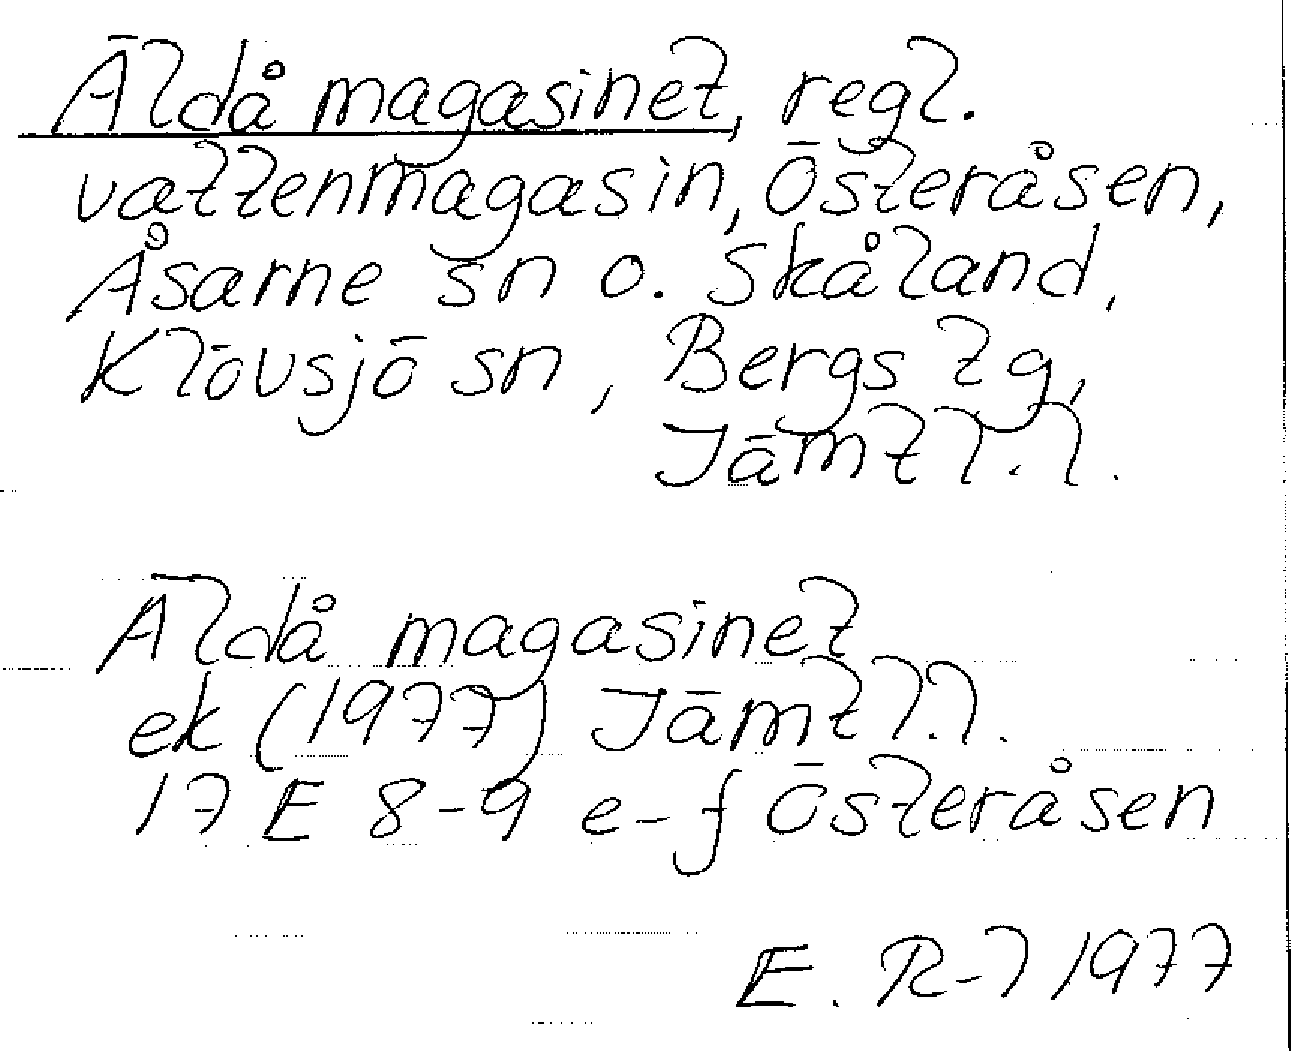 Äldå magasinet, regl.
vattenmagasin, Österåsen,
Åsarne sn o. Skåland,
Klövsjö sn, Bergs tg,
Jämtl.l.
Äldå magasinet
ek (1977) Jämtl.l.
17 E 8-9 e-f Österåsen
E. R-l 1977